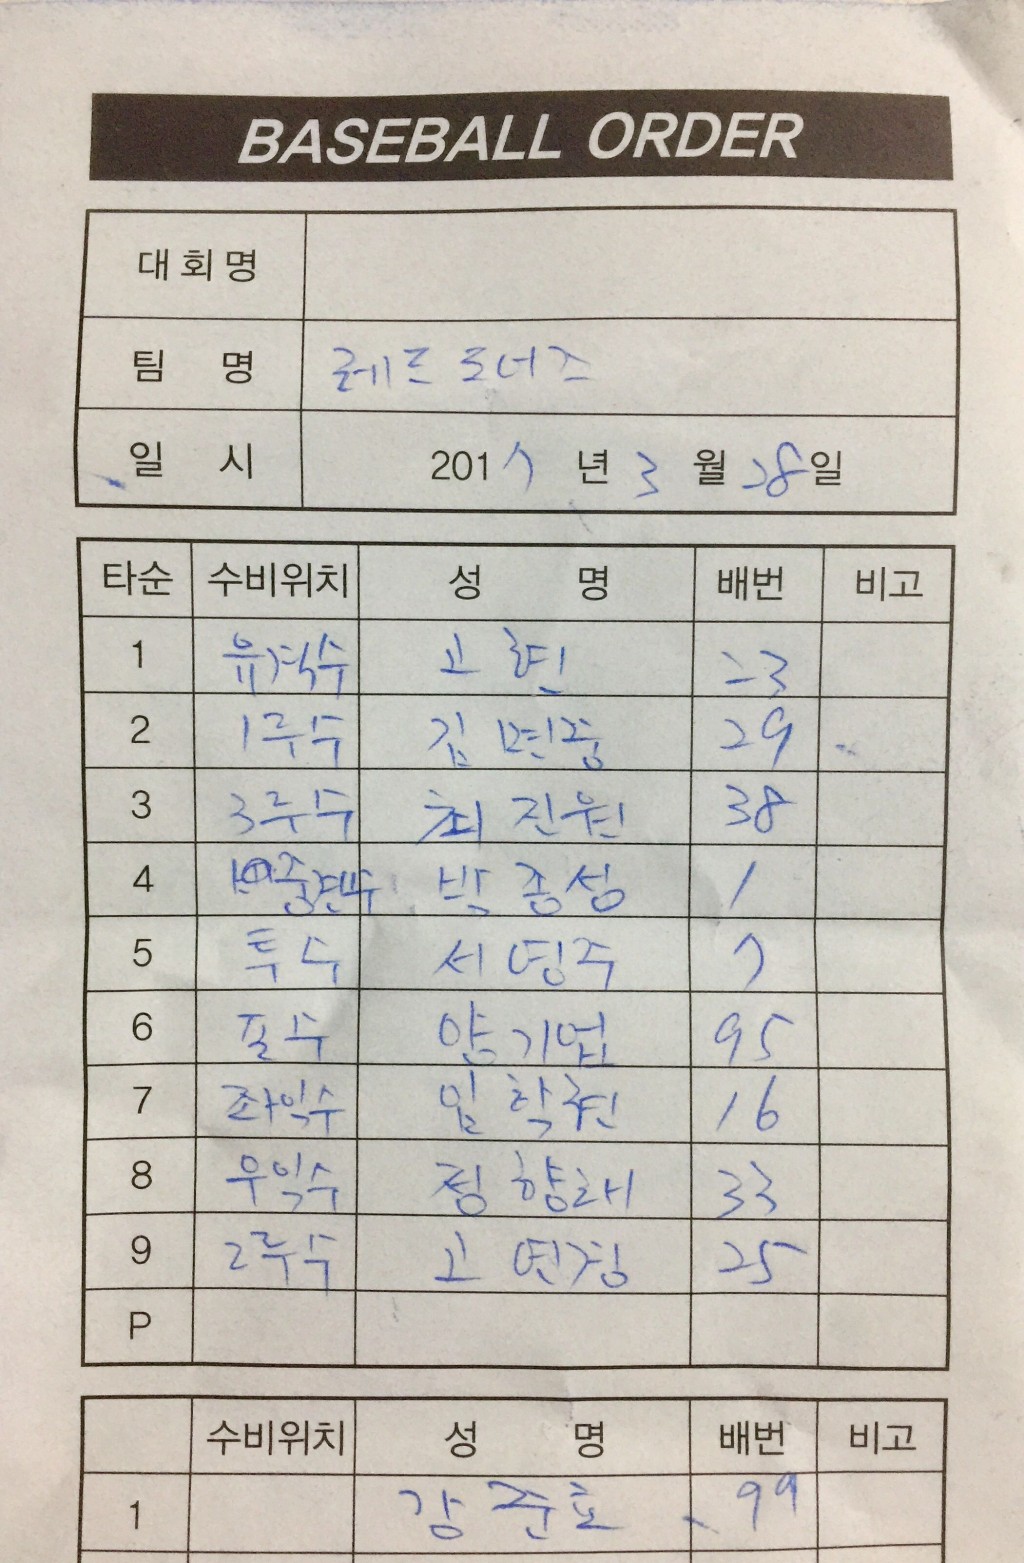 BASEBALL ORDER
대회명
팀 명 레드 토너즈
일 시 2017 년 3 월 28일
타순 수비위치 성 명 배번 비고
1 유격수 고 현 23
2 1루수 김 면중 29
3 3루수 최 진원 38
4 중견수 박 종성 1
5 투수 서 영주 7
6 포수 양 기업 95
7 좌익수 임 학현 16
8 우익수 정 향래 33
9 2루수 고 연정 25
P
수비위치 성 명 배번 비고
1 강 준호 99